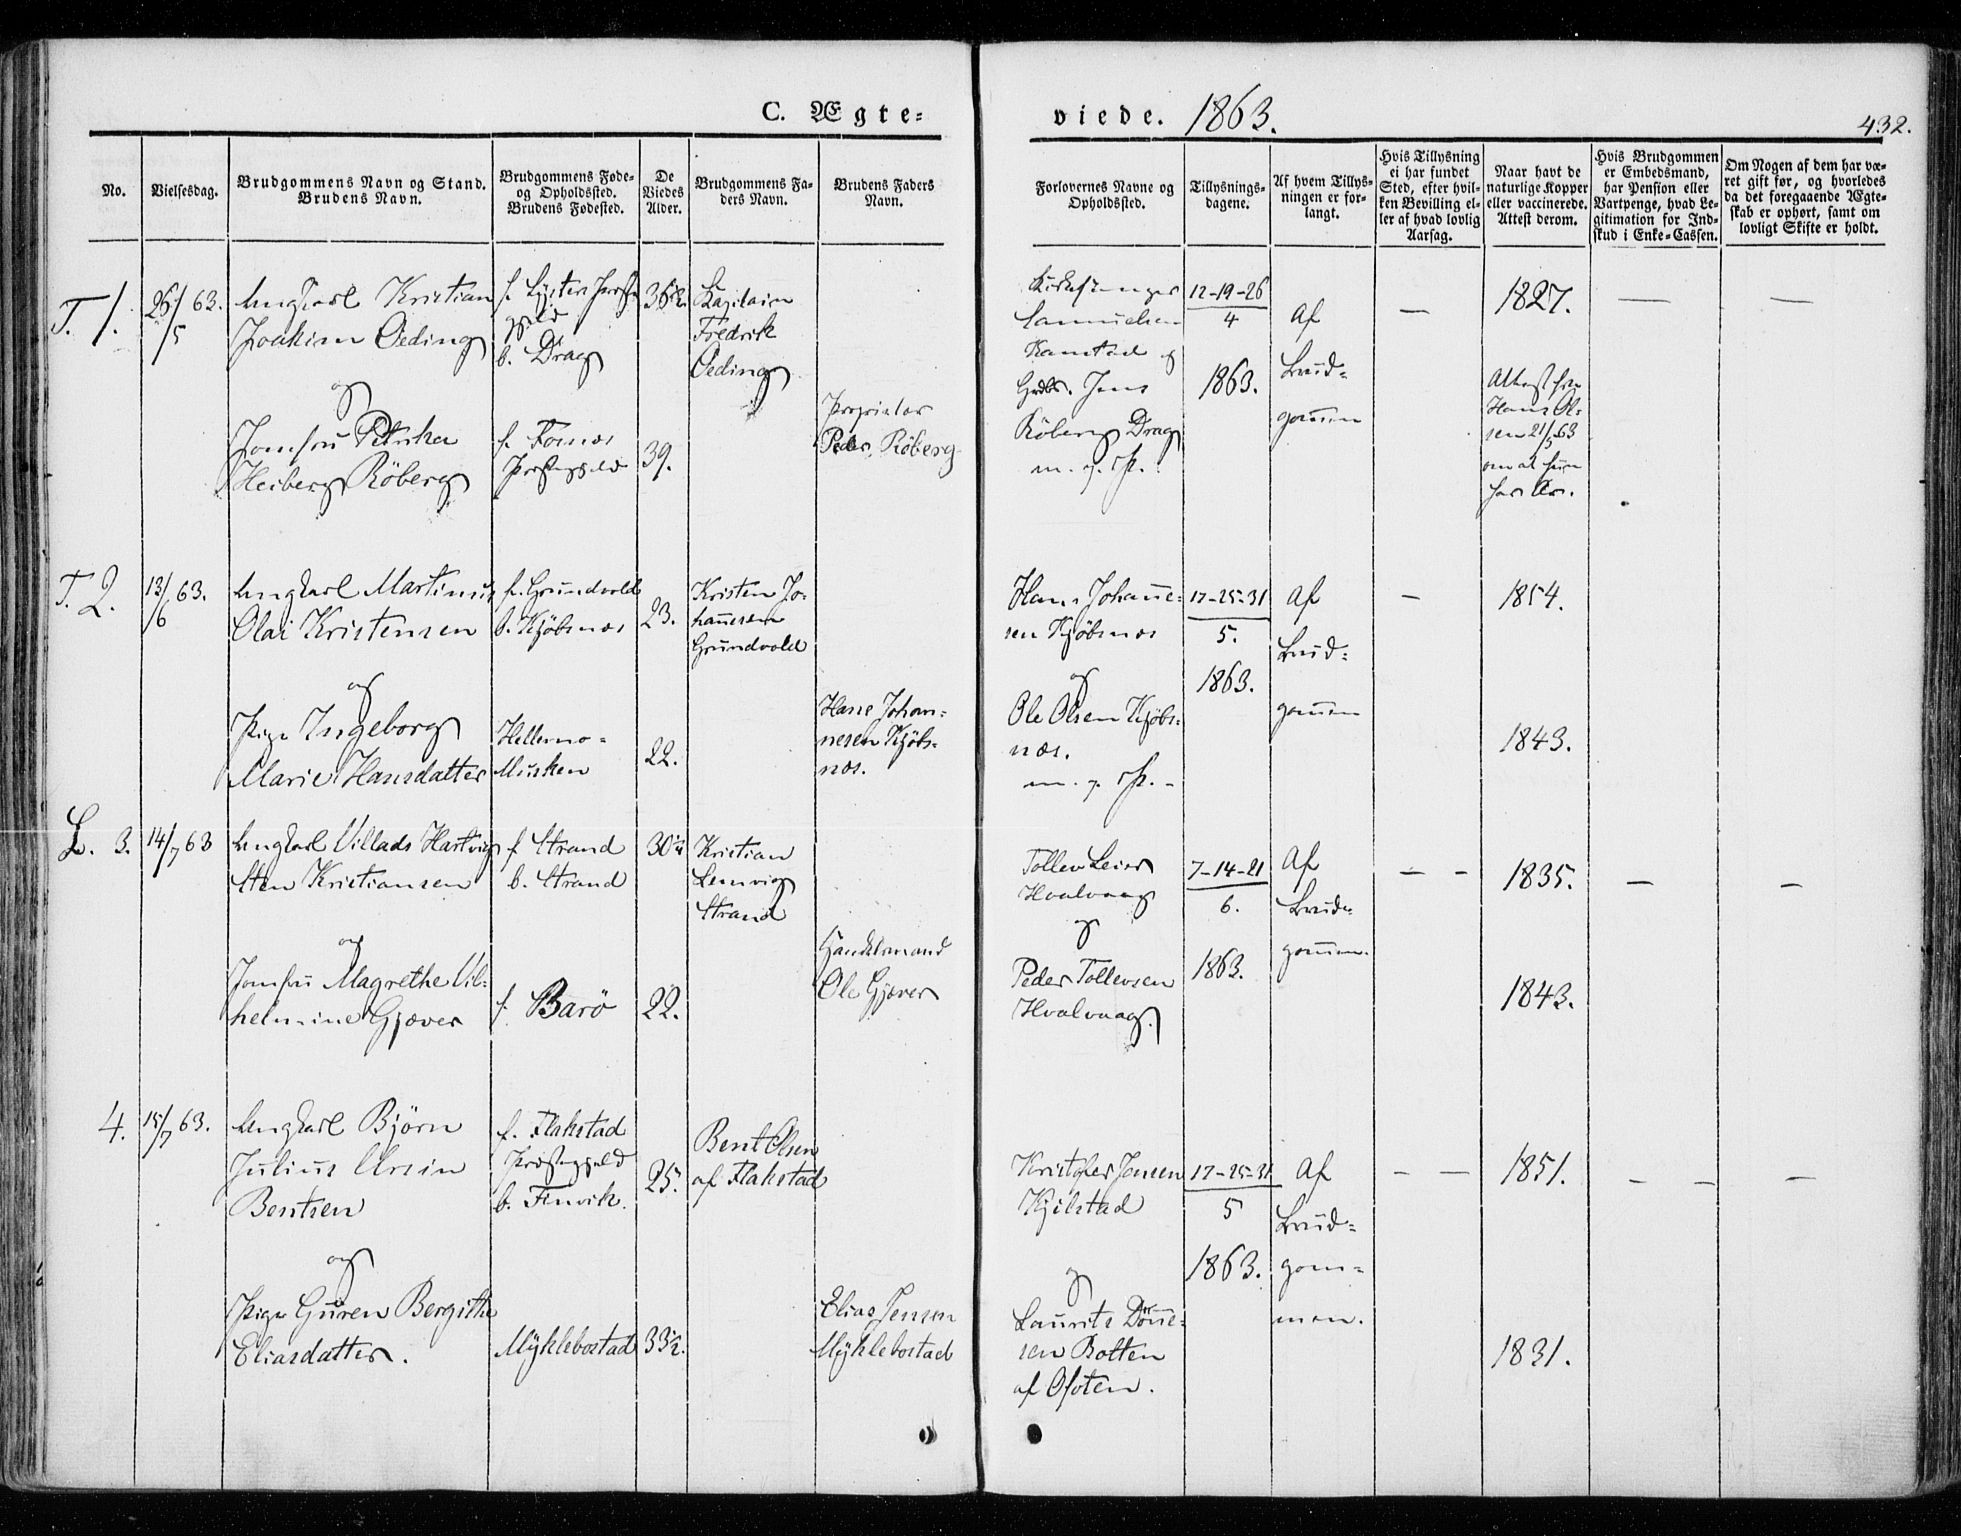 C. Ægte=
viede. 1863.
432.
No.
Vielsesdag.
Brudgommens Navn og Stand.
Brudens Navn.
Brudgommens Føde-
og Opholdssted.
Brudens Fødested.
De
Viedes
Alder.
Brudgommens Fa-
ders Navn.
Brudens Faders
Navn.
Forlovernes Navne og
Opholdssted.
Tillysnings-
dagene.
Af hvem Tillys-
ningen er for-
langt.
Hvis Tillysning
ei har fundet
Sted, efter hvil-
ken Bevilling el-
ler af hvad lovlig
Aarsag.
Naar havt de
naturlige Kopper
eller vaccinerede.
Attest derom.
Hvis Brudgommen
er Embedsmand,
har Pension eller
Vartpenge, hvad Le-
gitimation for Ind-
skud i Enke=Cassen.
Om Nogen af dem har væ-
ret gift før, og hvorledes
da det foregaaende Ægte-
skab er ophørt, samt om
lovligt Skifte er holdt.
T. 1.
26/5 63.
Ungkarl Kristian
Joakim Oeding
og
Jomfru
Heiberg Röberg
f. Lyster Præste
gjeld
b. Drag
f. Fosnæs
Præstegjeld
36½
39.
Kapitain
Fredrik
Oeding
Proprietær
Peder Röberg
Kirkesanger
Samuelsen
Kanstad og
Gdbr. Jens
Röberg Drag
m. o. P.
12-19-26
4
1863.
Af
Brud=
gommen
1827.
Attest fra
Hans Ol=
sen 21/5 63
om at hun
har Ar.
T. 2.
13/6 63.
Ungkarl Martinus
Olai Kristensen
og
Pige Ingeborg
Marie Hansdatter
f. Grundvold
b. Kjöbsnæs
Hellemo-
Musken
23.
22.
Kristen Jo-
hannesen
Grundvold
Hans Johan=
nesen Kjöbs=
næs.
Hans Johanne=
sen Kjöbsnæs
og
Ole Olsen Kjöbs=
næs.
m. o. P.
17-25-31
5.
1863.
Af
Brud=
gommen
1854.
1843.
L. 3.
14/7 63
Ungkarl Villads Hartvig
Sten Kristiansen
og
Jomfru Magrethe Vil=
helmine Gjæver
f. Strand
b. Strand
f. Barö
30¼
22.
Kristian
Lemvig
Strand
Handelsmand
Ole Gjæver
Tollev Leier
Hvalvaag
og
Peder Tollevsen
Hvalvaag.
7-14-21
6.
1863.
Af
Brud=
gommen.
1835.
1843.
4.
15/7 63.
Ungkarl Björn
Julius Ursin
Bentsen
og
Pige Guren Bergithe
Eliasdatter.
f. Flakstad
Præstegjeld
b. Finvik.
Myklebostad
25.
33½.
Bent Olsen
af Flakstad
Elias Jensen
Myklebostad
Kristofer Jensen
Kjilstad
og
Laurits Dönne=
sen Botten
af Ofoten.
17-25-31
5
1863.
Af
Brud=
gom=
men.
1851.
1831.